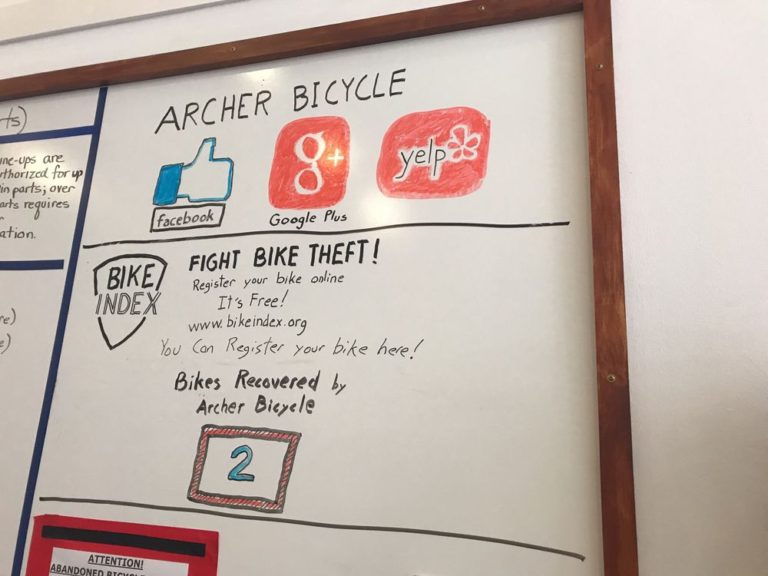 ARCHER BICYCLE
facebook
g+
Google Plus
yelp
BIKE
INDEX
FIGHT BIKE THEFT!
Register your bike online
It's Free!
www.bikeindex.org
You Can Register your bike here!
Bikes Recovered by
Archer Bicycle
2
ATTENTION!
ABANDONED
ts)
ne-ups are
thorized for up
in parts; over
arts requires
ation.
e)